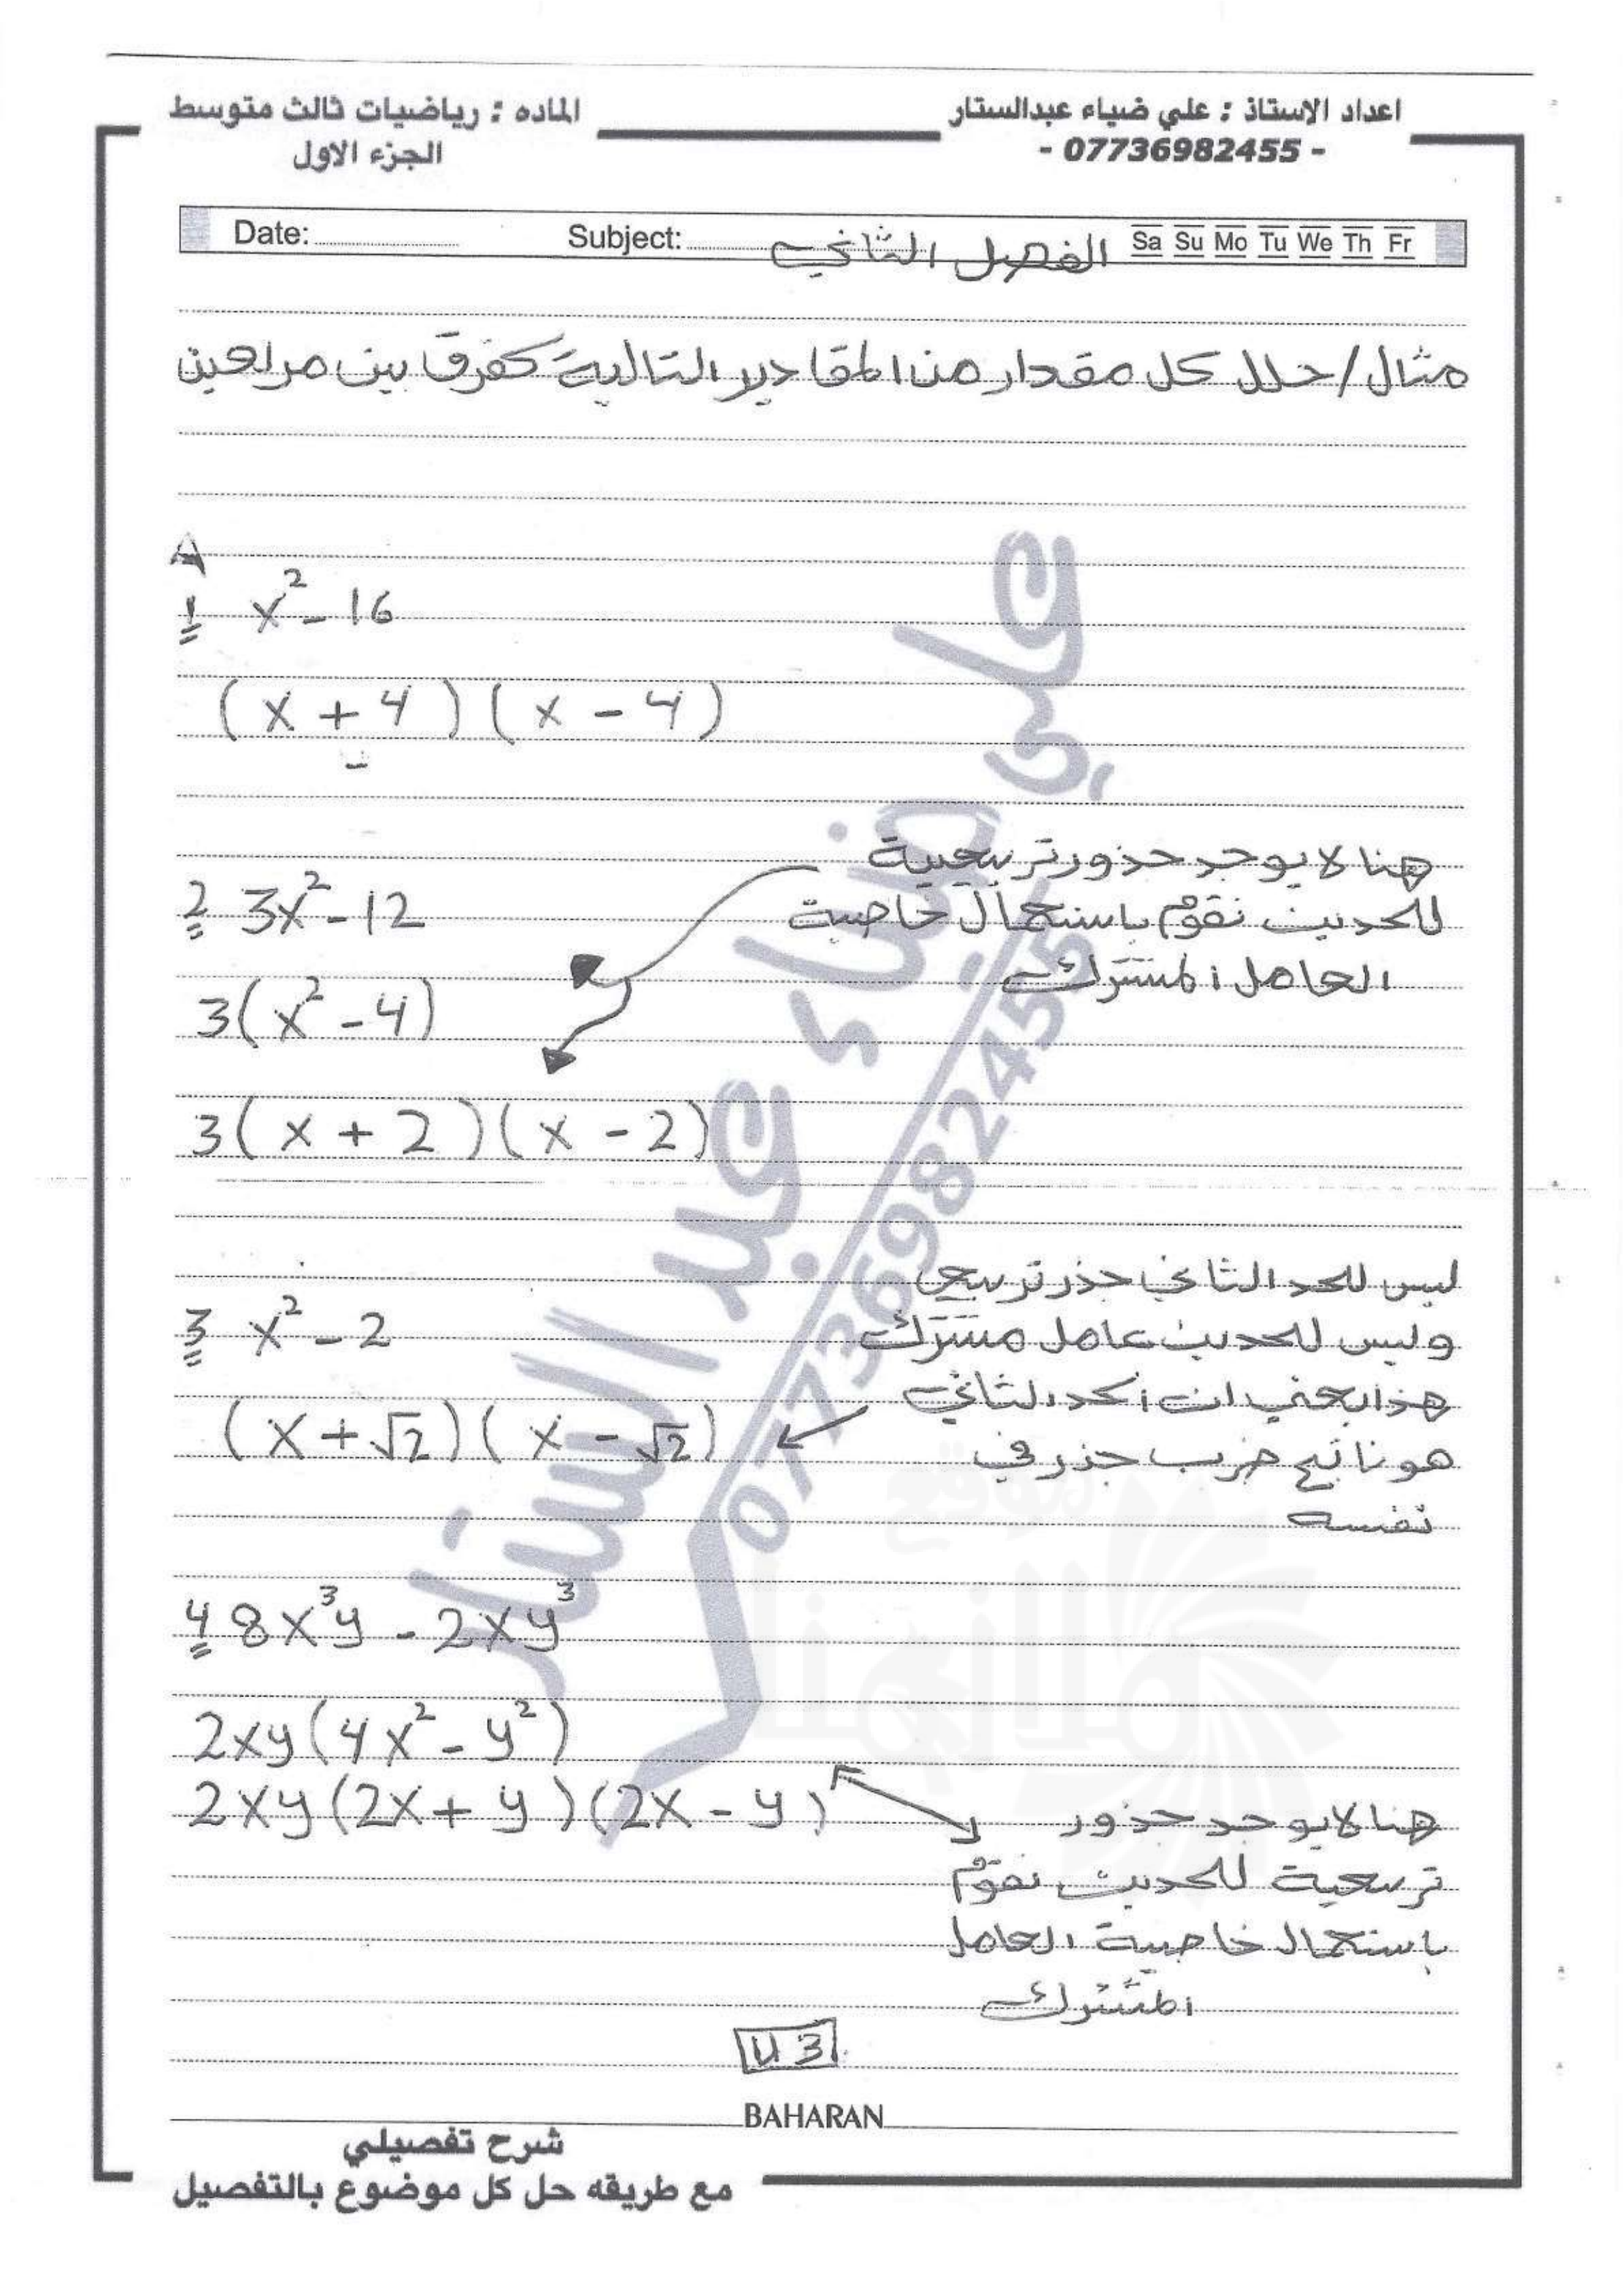 اعداد الاستاذ : علي ضياء عبدالستار
- 07736982455 -
الماده : رياضيات ثالث متوسط
الجزء الاول
Date: Subject: الفصل الثاني Sa Su Mo Tu We Th Fr
مثال / حلل كل مقدار من المقادير التالية كفرق بين مربعين
A
1 x² - 16
(x + 4)(x - 4)
هنا لا يوجد جذور تربيعية
2 3x² - 12
للحدين نقوم باستعمال خاصية
العامل المشترك
3(x² - 4)
3(x + 2)(x - 2)
ليس للحد الثاني جذر تربيعي
3 x² - 2
وليس للحدين عامل مشترك
هذا يعني ان الحد الثاني
(x + √2)(x - √2)
هو ناتج ضرب جذر في
نفسه
4 8x³y - 2xy³
2xy(4x² - y²)
2xy(2x + y)(2x - y)
هنا لا يوجد جذور
تربيعية للحدين نقوم
باستعمال خاصية العامل
المشترك
43
BAHARAN
شرح تفصيلي
مع طريقه حل كل موضوع بالتفصيل
علي ضياء عبد الستار
07736982455
موقع